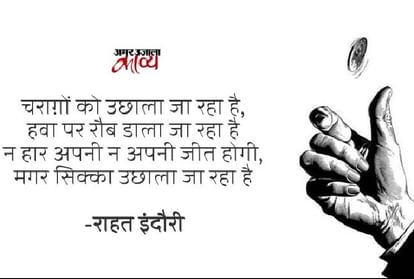 अमर उजाला
काव्य
चराग़ों को उछाला जा रहा है,
हवा पर रौब डाला जा रहा है
न हार अपनी न अपनी जीत होगी,
मगर सिक्का उछाला जा रहा है
-राहत इंदौरी